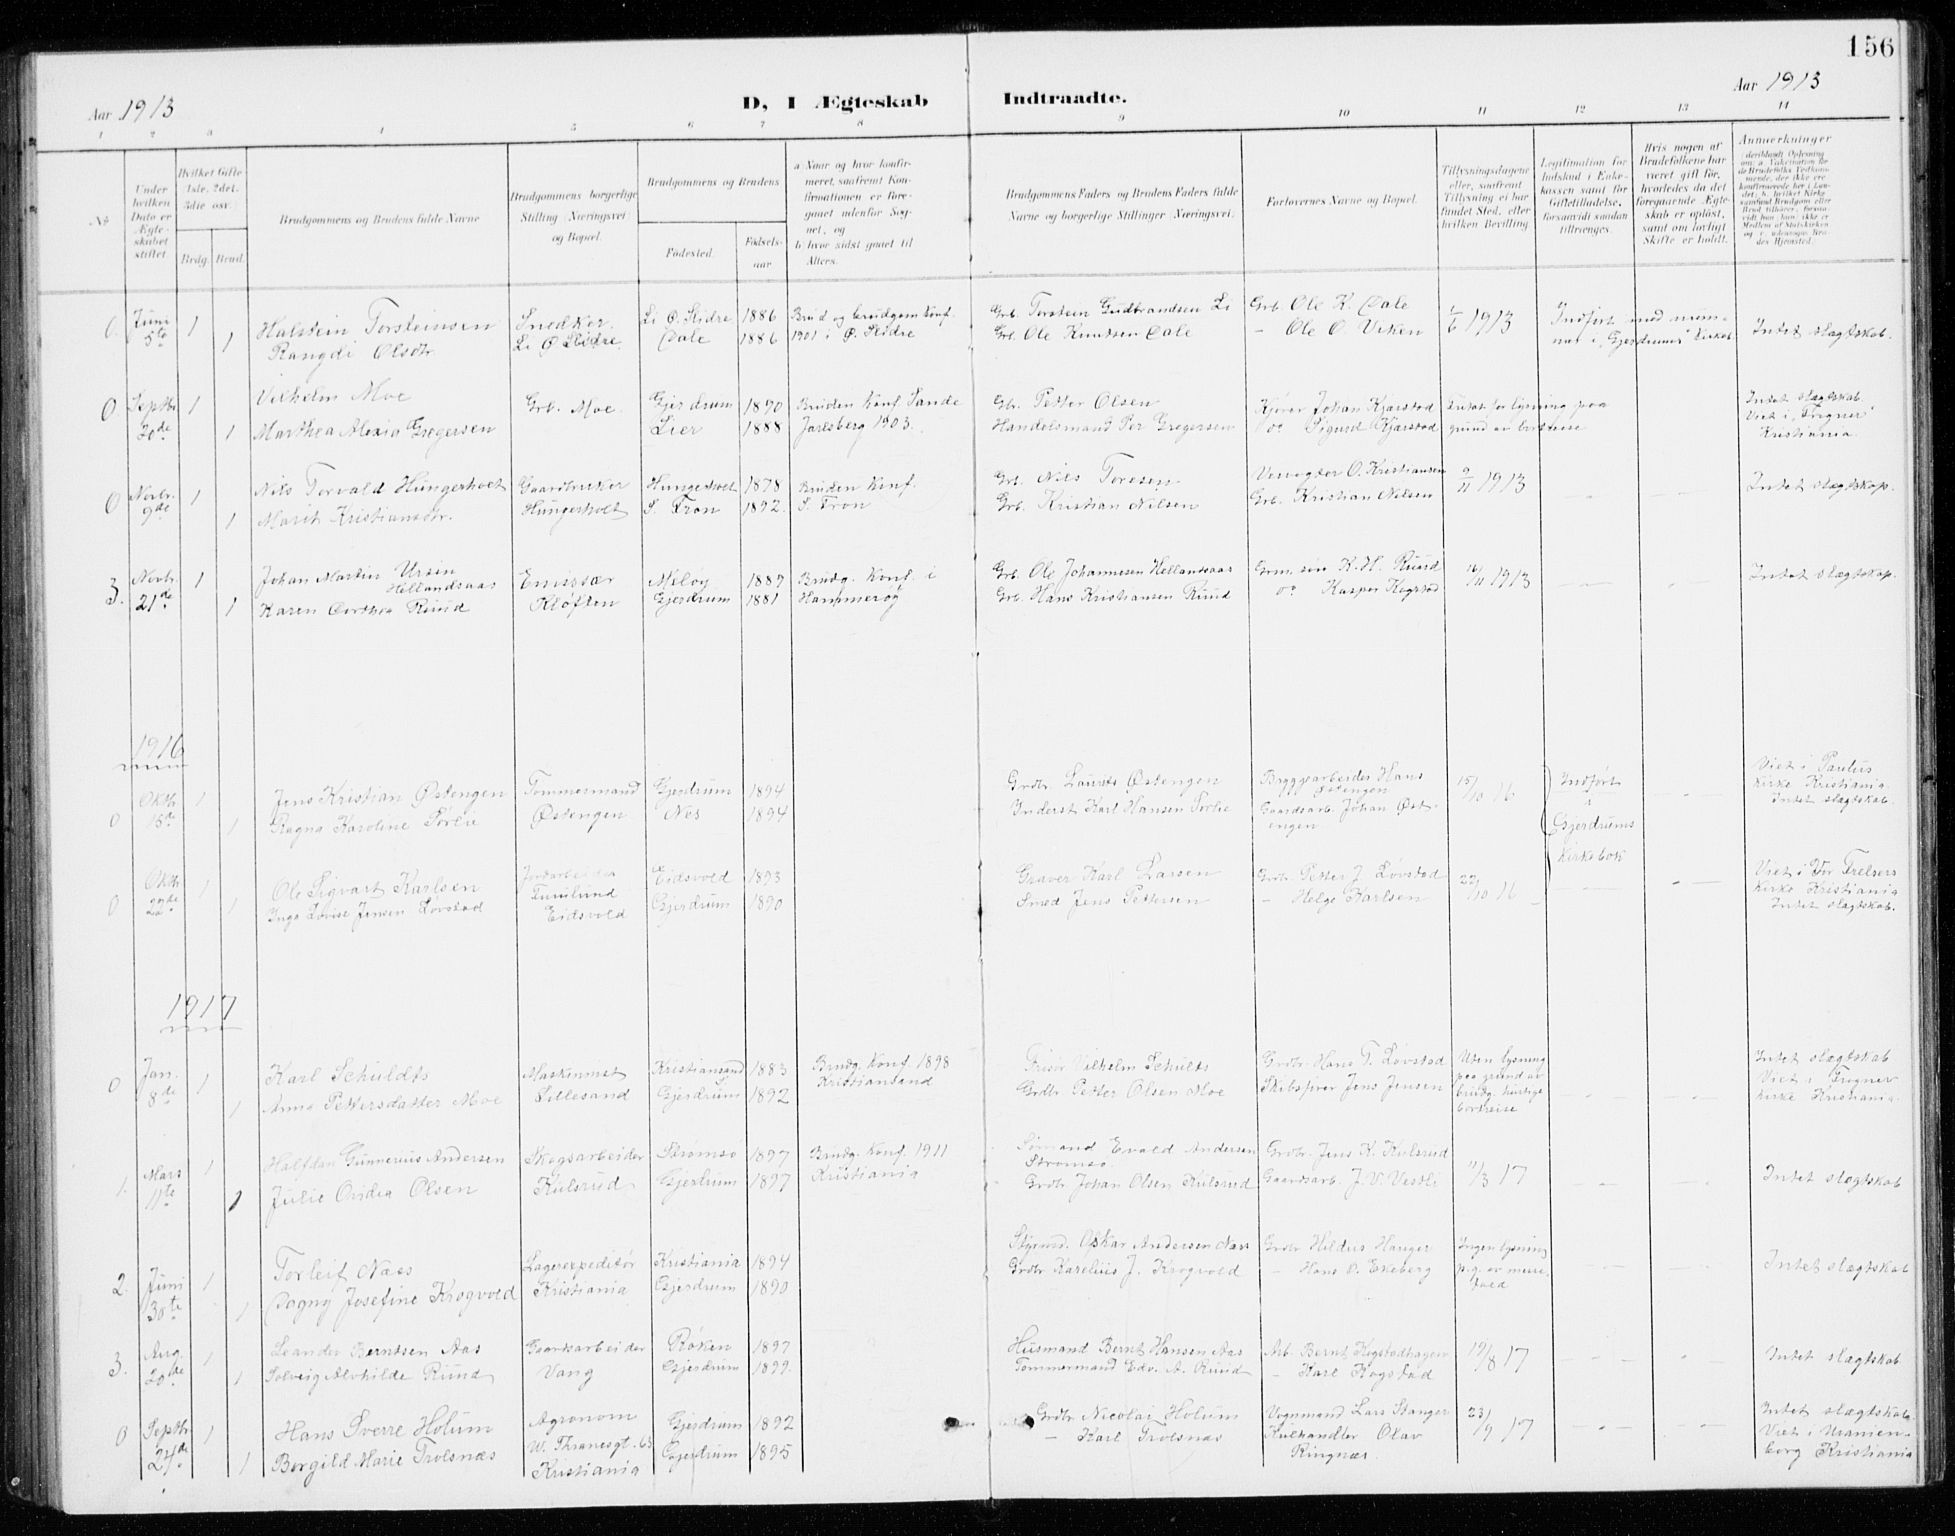 156
Aar 1913
D, I Ægteskab Indtraadte.
Aar 1913
1 2 3 4 5 6 7 8 9 10 11 12 13 14
No
Under hvilken Dato er Ægteskabet stiftet
Hvilket Gifte 1ste, 2det, 3die osv.
Brdg. Brud.
Brudgommens og Brudens fulde Navne
Brudgommens borgerlige Stilling (Næringsvei) og Bopæl.
Brudgommens og Brudens
Fødested. Fødselsaar
a. Naar og hvor konfirmeret, saafremt Konfirmationen er foregaaet udenfor Sognet, og
b. hvor sidst gaaet til Alters.
Brudgommens Faders og Brudens Faders fulde Navne og borgerlige Stillinger (Næringsvei).
Forlovernes Navne og Bopæl.
Tillysningsdagene eller, saafremt Tillysning ei har fundet Sted, efter hvilken Bevilling.
Legitimation for Indskud i Enkekassen samt for Giftetilladelse, forsaavidt saadan tiltrænges.
Hvis nogen af Brudefolkene har været gift før, hvorledes da det foregaaende Ægteskab er opløst, samt om lovligt Skifte er holdt.
Anmerkninger
0. Juni 5te 1 Halstein Torsteinsen Snedker Li Ø. Slidre 1886 Brud og brudgom konf. Grb. Torstein Gudbrandsen Li Grb. Ole K. Dale 1/6 1913 Indført med nummer i "Gjerdrums" Kirkeb. Intet slægtskab.
1 Rangdi Olsdtr. Li Ø Slidre Dale 1886 1901 i Ø. Slidre Grb. Ole Knutsen Dale – Ole O. Viken
0 Septbr. 20de 1 Vilhelm Moe Grb. Moe Gjerdrum 1890 Bruden konf. Sande Gb. Petter Olsen Kjører Johan Kjærstad Fritat for lysning paa grund av bortreise Intet slægtskab. Viet i "Frogner" Kristiania.
1 Marthea Alexia Gregersen Lier 1888 Jarlsberg 1903. Handelsmand Per Gregersen do Sigurd Kjærstad
0 Novbr. 9de 1 Nils Torvald Hungerholt Gaardbruker Hungerholt 1878 Bruden konf. Grb. Nils Toresen Veivogter O. Kristiansen 9/11 1913 Intet slægtskap.
1 Marit Kristiansdtr. Hungerholt S. Fron 1892. S. Fron Grb. Kristian Nilsen Grb. Kristian Nilsen
3. Novbr. 21de 1 Johan Martin Ursin Hellandsaas Enissær Meløy 1887 Brudg. konf. i Grb. Ole Johannesen Hellandsaas Grm. søn K. H. Ruud 16/11 1913 Intet slægtskap.
1 Karen Dorthea Ruud Kløften Gjerdrum 1881 Hammerøy Grb. Hans Kristiansen Ruud do Kasper Kogstad
1916
0 Oktbr. 15de 1 Jens Kristian Østengen Tømmermand Gjerdrum 1894 Grdbr. Laurits Østengen Byggearbeider Hans Østengen 15/10 16 Indført i Gjerdrums kirkebok Viet i Paulus kirke Kristiania. Intet slægtskab.
1 Ragna Karoline Sørlie Østengen Nes 1894 Inderst Karl Hansen Sørlie Gaardsarb. Johan Østengen
0 Oktbr 22de 1 Ole Sigvart Karlsen Jordarbeider Eidsvold 1893 Graver Karl Larsen Grdbr. Petter J. Løvstad 22/10 16 Viet i Vor Frelsers kirke Kristiania Intet slægtskab.
1 Inga Lovise Jensen Løvstad Eidsvold Gjerdrum 1890 Smed Jens Pettersen – Helge Karlsen
1917
0 Jan. 8de 1 Karl Schuldts Maskinmst Kristiansand S. 1883 Brudg. konf. 1898 Frisør Vilhelm Schults Grdbr. Hans T. Løvstad Uten lysning paa grund av brudg. hurtige bortreise Intet slægtskab Viet i Frogner kirke Kristiania.
1 Anna Pettersdatter Moe Lillesand Gjerdrum 1892 Kristiansand Grdbr. Petter Olsen Moe Skibsprov. Jens Jensen
1. Mars 11te 1 Halfdan Gunnerius Andersen Skogsarbeider Strømsø 1897 Brudg. konf. 1911 Sømand Evald Andersen Strømsø Grdbr. Jens K. Kulsrud 11/3 17 Intet slægtskab
1 Julie Ovidea Olsen Kulsrud Gjerdrum 1897 Kristiania Grdbr. Johan Olsen Kulsrud Gaardsarb. J. V. Vestli
2. Juni 30te 1 Torleif Næss Lagerexpeditør Kristiania 1894 Styrmd. Oskar Andersen Næss Grdbr Hildus Hauger Ingen lysning Intet slægtskab
1 Dagny Josefine Krogvold Kristiania Gjerdrum 1890 Grdbr Karelius J. Krogvold – Hans O. Ekeberg
3. Aug. 20de 1 Leander Berntsen Aas Gaardsarbeider Røken 1897 Husmand Bernt Hansen Aas Arb. Bernt Kogstadhagen 19/8 17 Intet slægtskab
1 Solveig Alvhilde Ruud Vang Gjerdrum 1899. Tømmermand Edv. A. Ruud – Karl Kogstad
0 Septbr. 24de 1 Hans Sverre Holum Agronom Gjerdrum 1892 Grdbr. Nicolai Holum Vognmand Lars Stanger 23/9 17 Intet slægtskab Viet i Uranienborg Kristiania
1 Borgild Marie Trolsnæs W. Thranesgt. 65 Kristiania Gjerdrum 1895 – Karl Trolsnæs Kulhandler Olav Ringnæs.